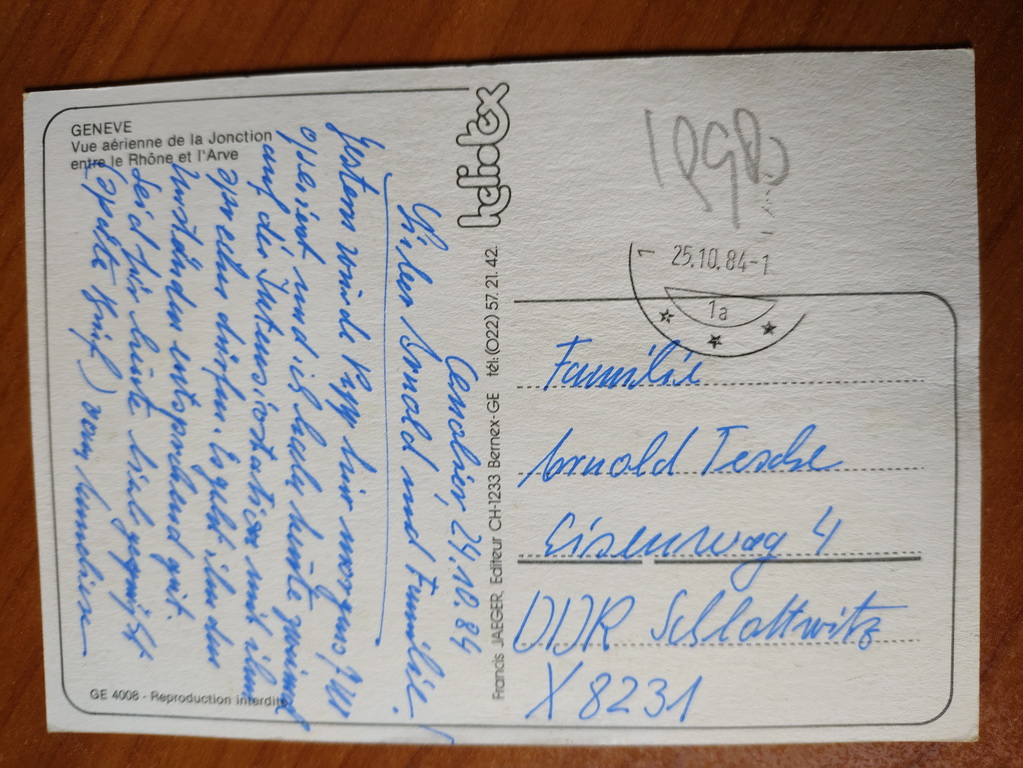 GENEVE
Vue aérienne de la Jonction
entre le Rhône et l'Arve
Annelies, 24.10.84
Lieber Arnold und Familie!
Gestern wurde Pepp hier morgens 7 Uhr
operiert und ich habe heute zweimal
auf der Intensivstation mit ihm
sprechen dürfen. Es geht ihm den
Umständen entsprechend gut.
Seid für heute lieb gegrüßt
(später Brief) von Annelies
GE 4008 - Reproduction interdite
heliotex
Francis JAEGER, Editeur CH-1233 Bernex-GE tél: (022) 57.21.42.
1 25.10.84-1
1a
Familie
Arnold Tesche
Eisenweg 4
DDR Schlottwitz
X 8231